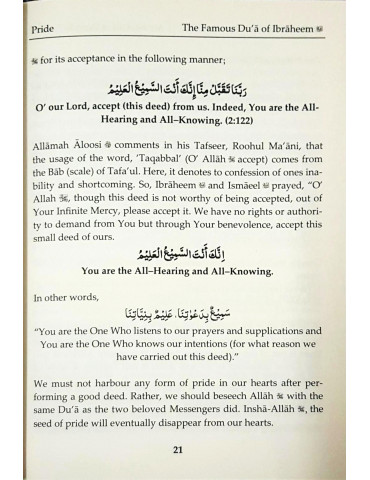 Pride The Famous Du’ā of Ibrāheem
ﷻ for its acceptance in the following manner;
رَبَّنَا تَقَبَّلْ مِنَّا إِنَّكَ أَنْتَ السَّمِيْعُ الْعَلِيْمُ
O’ our Lord, accept (this deed) from us. Indeed, You are the All-
Hearing and All–Knowing. (2:122)
Allāmah Āloosi comments in his Tafseer, Roohul Ma’āni, that
the usage of the word, ‘Taqabbal’ (O’ Allāh ﷻ accept) comes from
the Bāb (scale) of Tafa’ul. Here, it denotes to confession of ones ina-
bility and shortcoming. So, Ibrāheem and Ismāeel prayed, “O’
Allah ﷻ, though this deed is not worthy of being accepted, out of
Your Infinite Mercy, please accept it. We have no rights or authori-
ty to demand from You but through Your benevolence, accept this
small deed of ours.
اِنَّكَ أَنْتَ السَّمِيْعُ الْعَلِيْمُ
You are the All–Hearing and All–Knowing.
In other words,
سَمِيْعٌ بِدَعْوَتِنَا، عَلِيْمٌ بِنِيَّاتِنَا
“You are the One Who listens to our prayers and supplications and
You are the One Who knows our intentions (for what reason we
have carried out this deed).”
We must not harbour any form of pride in our hearts after per-
forming a good deed. Rather, we should beseech Allāh ﷻ with the
same Du’ā as the two beloved Messengers did. Inshā-Allāh ﷻ, the
seed of pride will eventually disappear from our hearts.
21